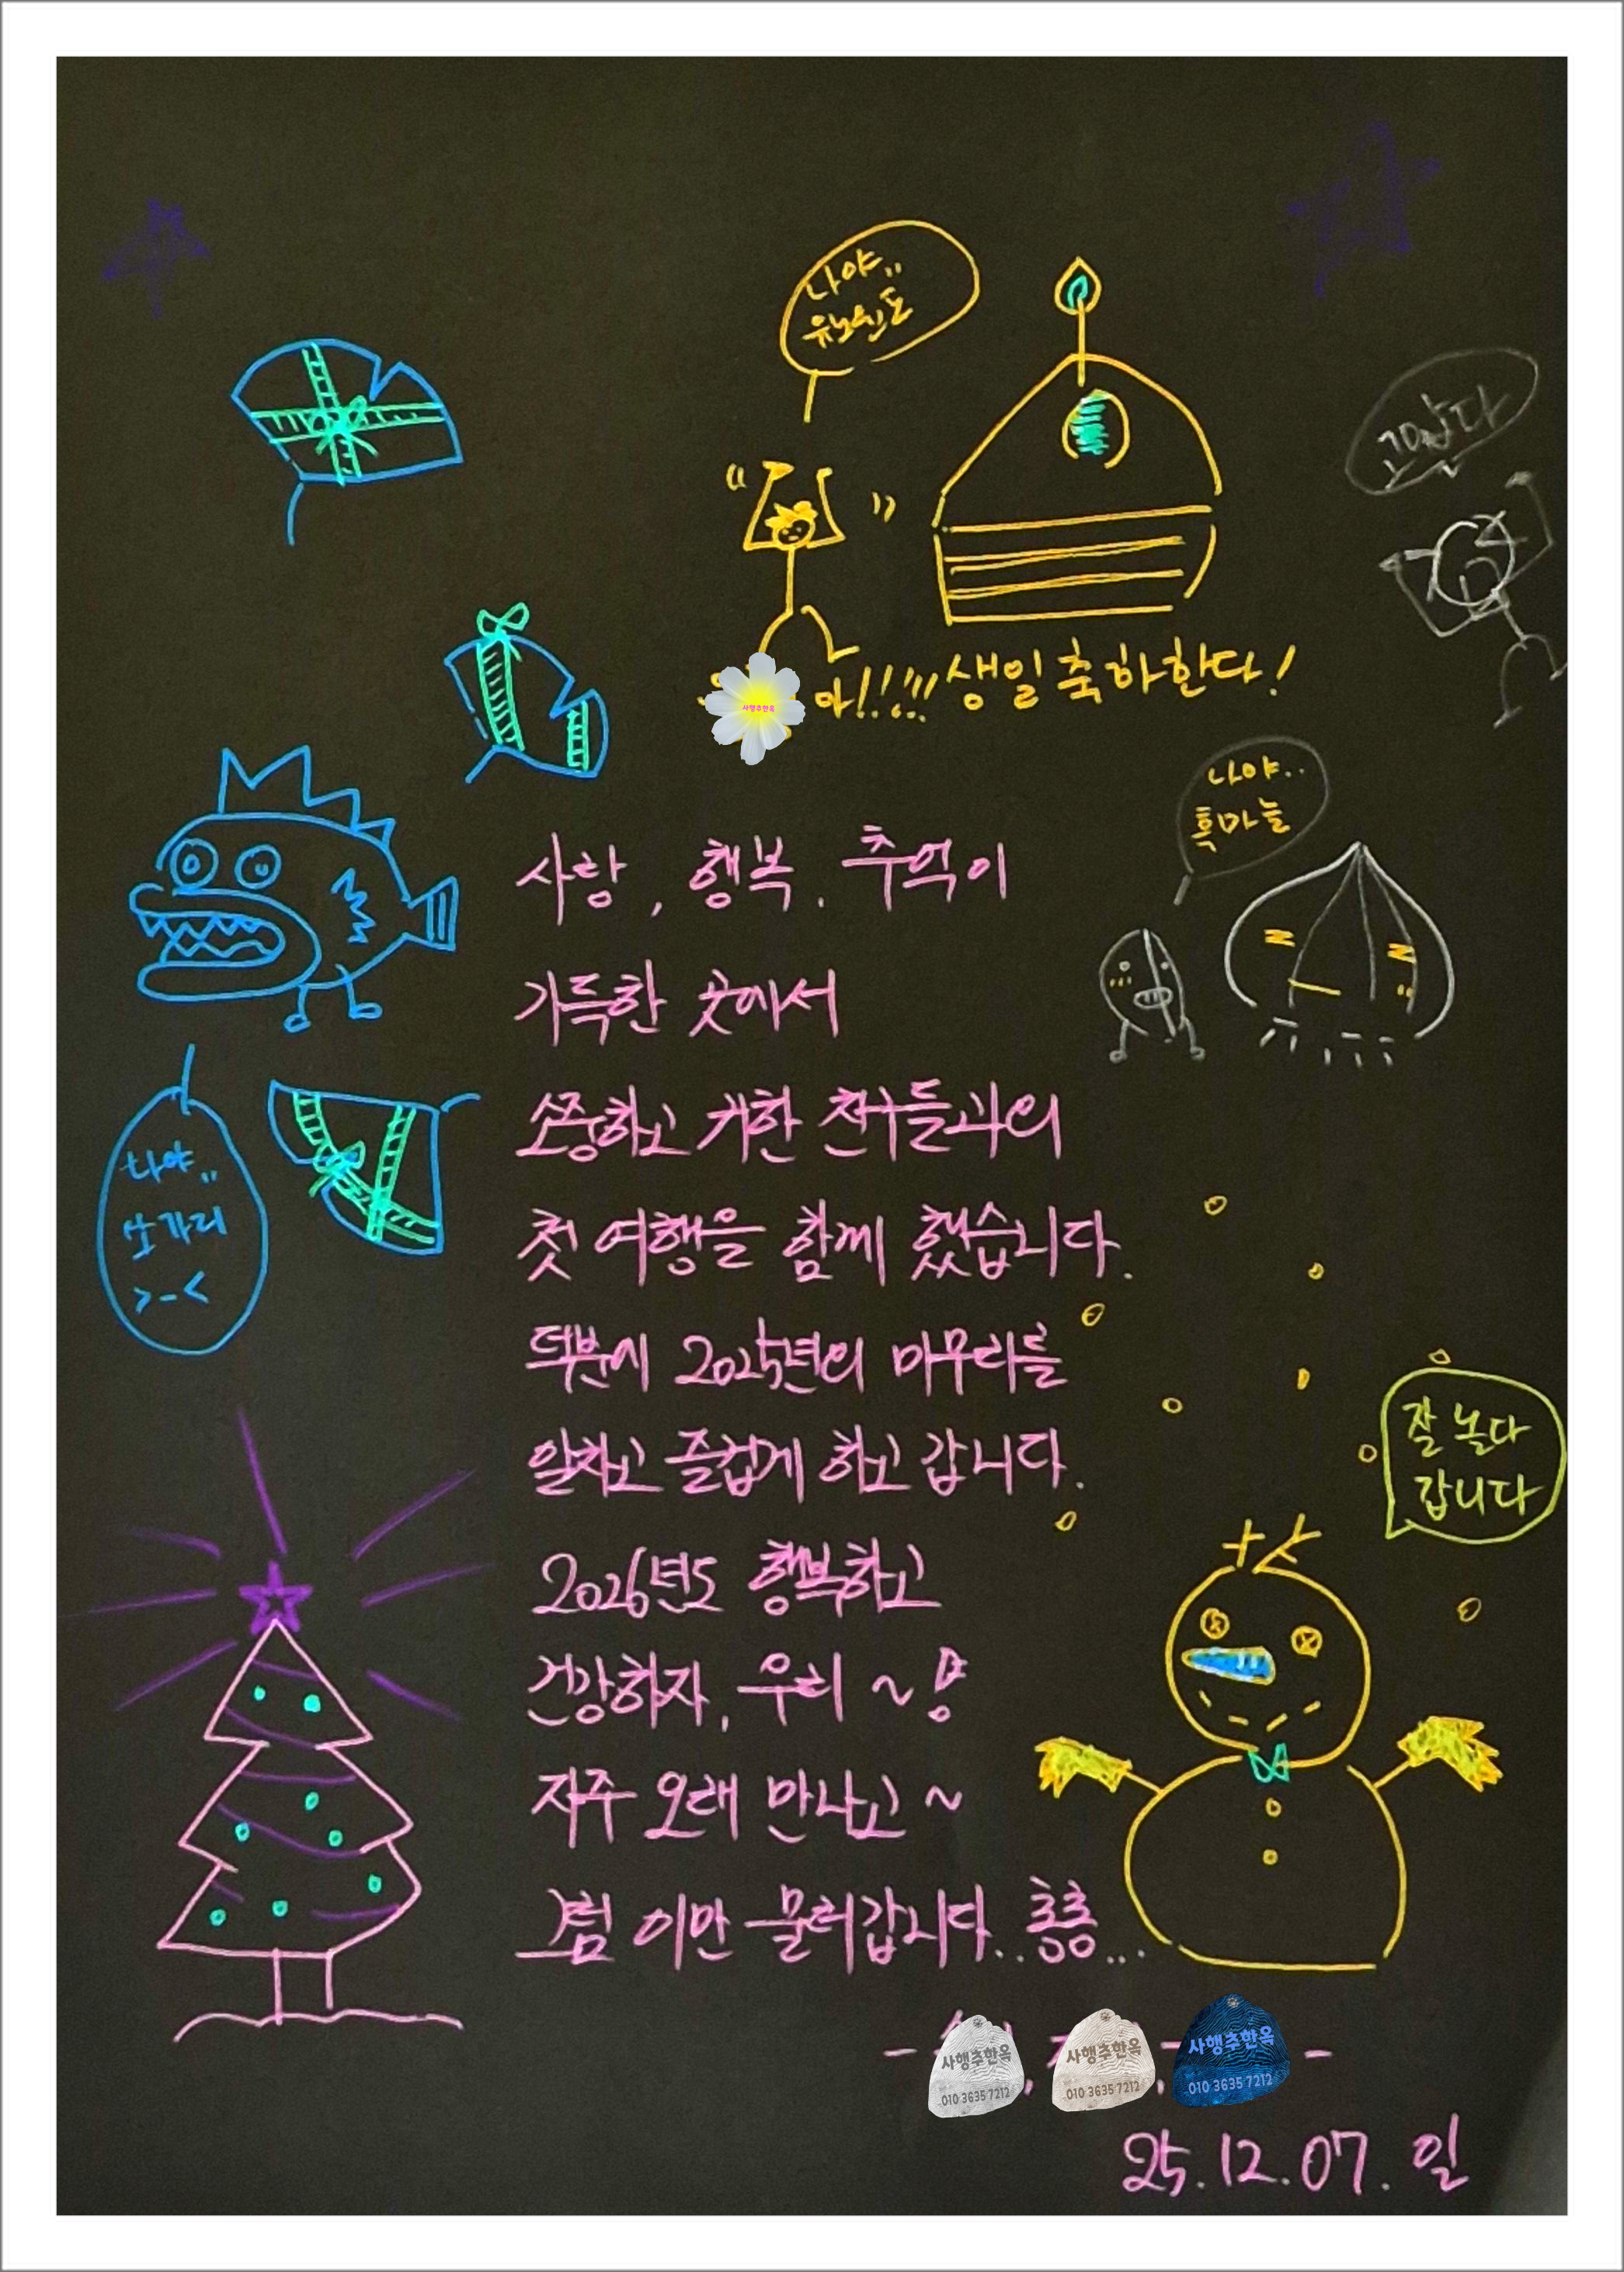 나야..
고맙다
아!!!!! 생일 축하한다!
사행추한옥
나야..
흑마늘
사랑, 행복, 추억이
가득한 곳에서
소중하고 귀한 친구들과의
첫 여행을 함께 했습니다.
덕분에 2025년의 마무리를
알차고 즐겁게 하고 갑니다.
2026년도 행복하고
건강하자, 우리 ~
자주 오래 만나고 ~
그럼 이만 물러갑니다.. 총총...
나야..
쏘가리
>-<
잘 놀다
갑니다
사행추한옥
010 3635 7212
사행추한옥
010 3635 7212
사행추한옥
010 3635 7212
25.12.07.일